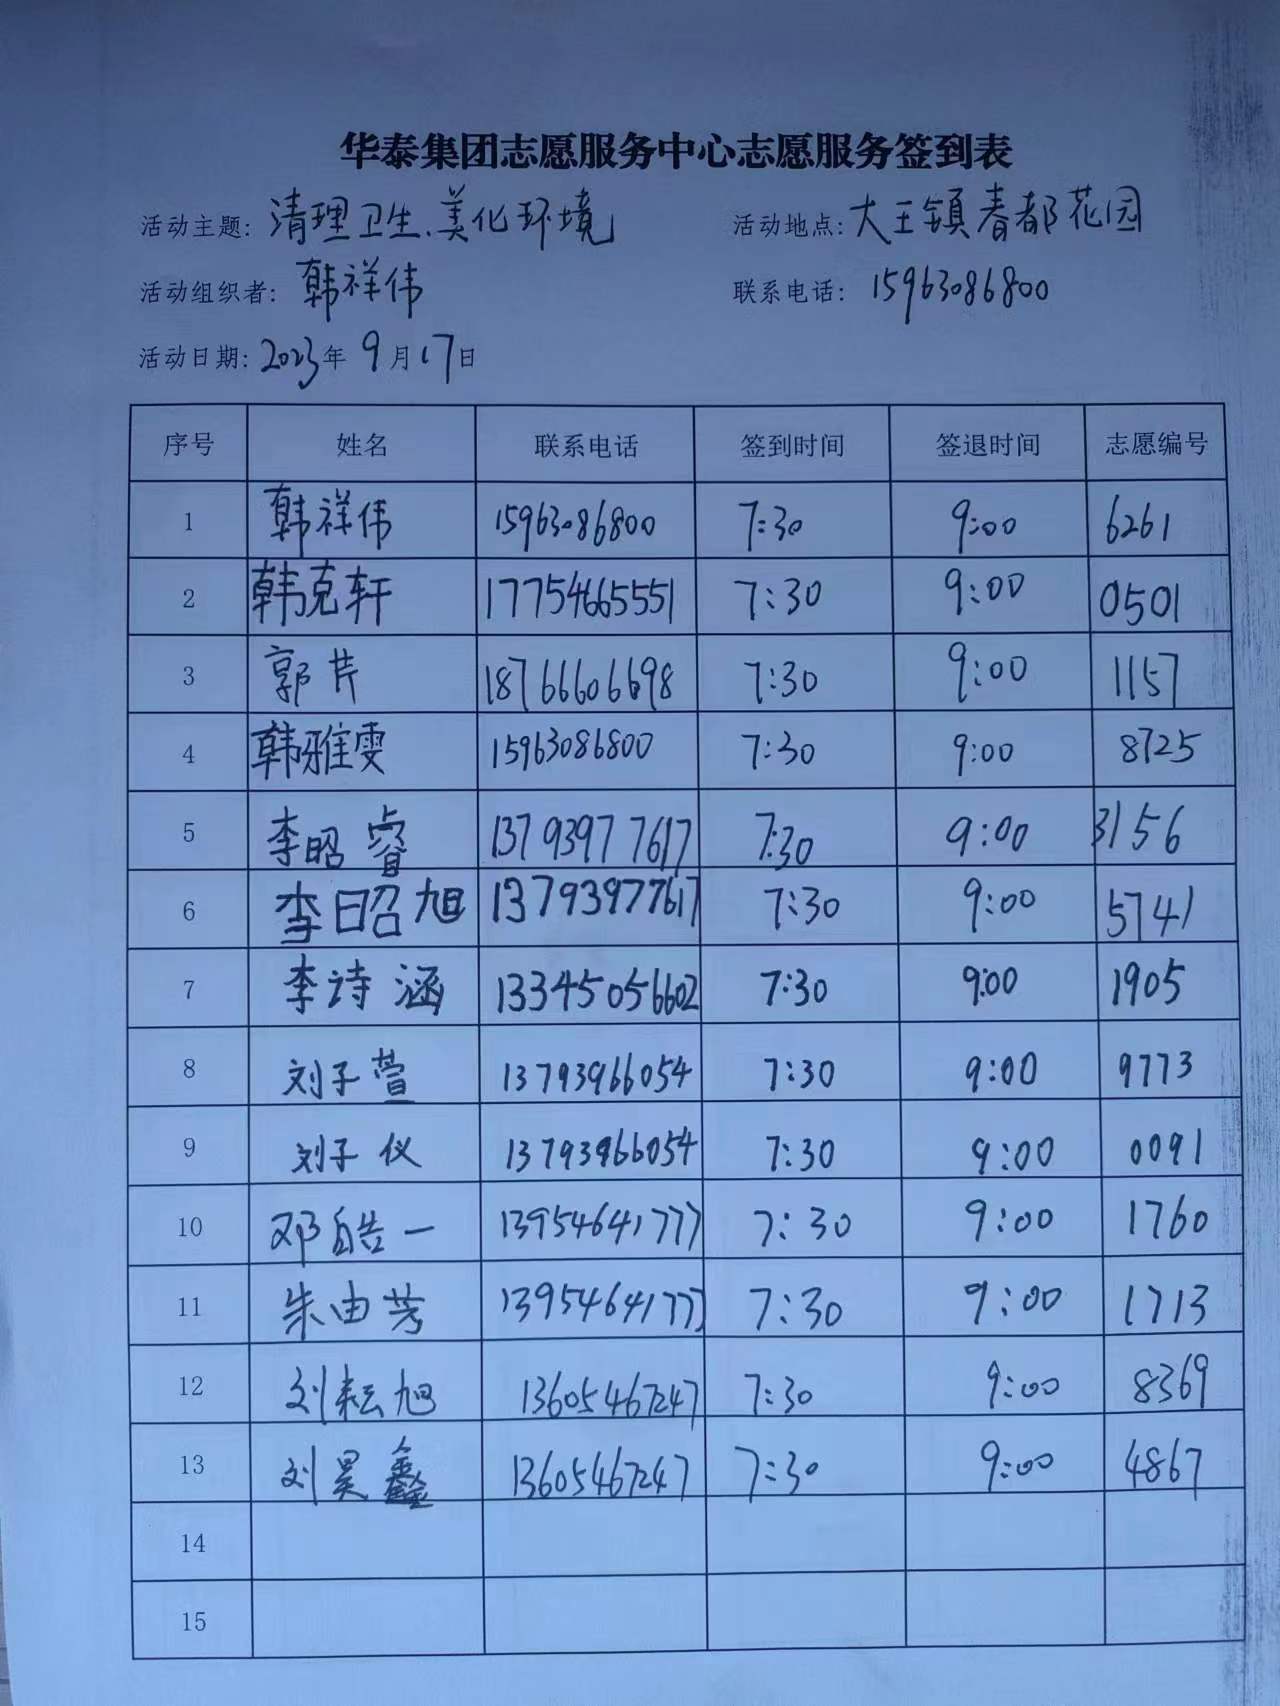 华泰集团志愿服务中心志愿服务签到表
活动主题: 清理卫生、美化环境 活动地点: 大王镇春都花园
活动组织者: 韩祥伟 联系电话: 15963086800
活动日期: 2023年 9月17日
序号 姓名 联系电话 签到时间 签退时间 志愿编号
1 韩祥伟 15963086800 7:30 9:00 6261
2 韩克轩 17754665551 7:30 9:00 0501
3 郭芹 18766606698 7:30 9:00 1157
4 韩雅雯 15963086800 7:30 9:00 8725
5 李昭睿 13793977617 7:30 9:00 3156
6 李昭旭 13793977617 7:30 9:00 5741
7 李诗涵 13345056602 7:30 9:00 1905
8 刘子萱 13793966054 7:30 9:00 9773
9 刘子仪 13793966054 7:30 9:00 0091
10 邓皓一 13954641777 7:30 9:00 1760
11 朱由芳 13954641777 7:30 9:00 1713
12 刘耘旭 13605467247 7:30 9:00 8369
13 刘昊鑫 13605467247 7:30 9:00 4867
14
15